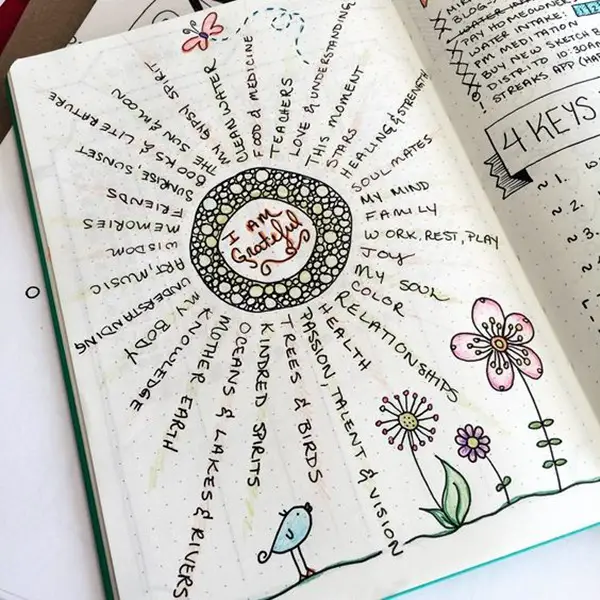 I AM
Grateful
CLEAN WATER
FOOD & MEDICINE
TEACHERS
LOVE & UNDERSTANDING
THIS MOMENT
STARS
HEALING & STRENGTH
SOULMATES
MY MIND
FAMILY
WORK, REST, PLAY
JOY
MY SOUL
COLOR
RELATIONSHIPS
HEALTH
PASSION, TALENT & VISION
TREES & BIRDS
KINDRED SPIRITS
OCEANS & LAKES & RIVERS
MOTHER EARTH
KNOWLEDGE
MY BODY
UNDERSTANDING
ART/MUSIC
WISDOM
MEMORIES
FRIENDS
SUNRISE SUNSET
BOOKS & LITERATURE
THE SUN & MOON
MY GYPSY SPIRIT
BLOG
WATER INTAKE
PAY HOMEOWNE
WATER INTAKE!
PM MEDITATION
BUY NEW SKETCH B
DISTRTO 10:30AM
STREAKS APP (HA
4 KEYS
~ 1.
~ 2.
~ 3.